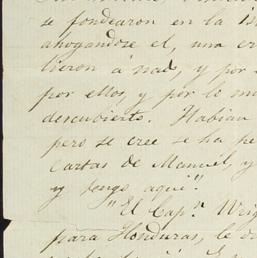 se fondearon en la Is
ahogandose el, una cr
lieron á nado, y por
por ellos, y por lo mu
descubierto. Habian
pero se cree se ha pe
cartas de Manuel, y
y tengo aqui."
"El Cap.n Wrig
para Honduras, le d